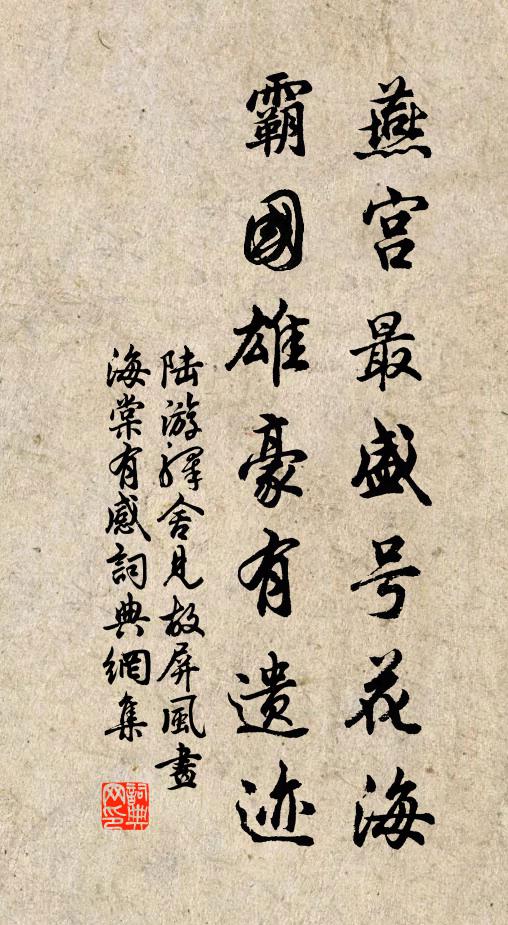 燕宫最盛号花海
霸國雄豪有遗迹
陆游驿舍見故屏風畫
海棠有感詞典網集
詞典网印